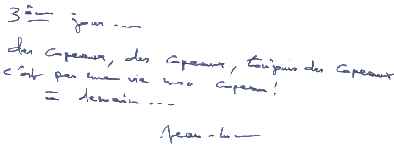 3ème jour ...
des copeaux, des copeaux, toujours des copeaux
c'est pas une vie mon copeau !
= demain ...
Jean-Lu